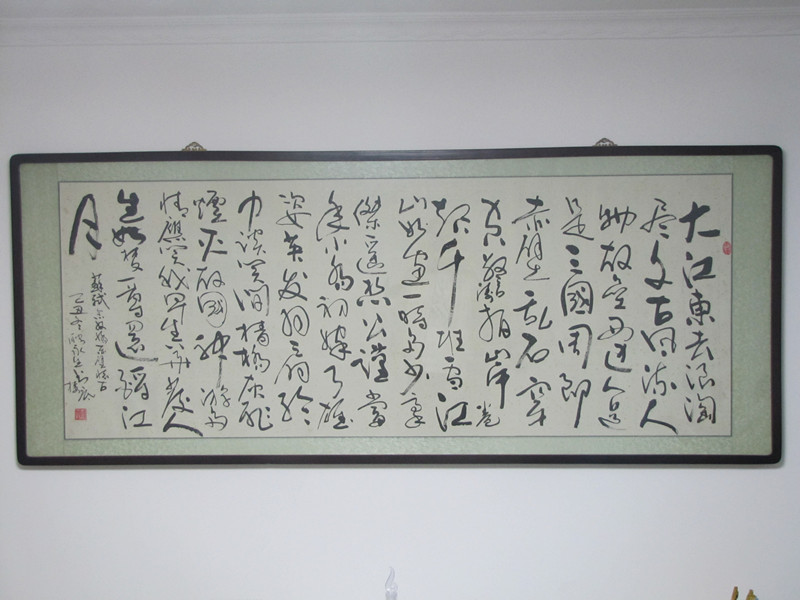 大江東去浪淘
尽千古風流人
物故壘西邊人道
是三國周郎
赤壁乱石穿
空驚濤拍岸卷
起千堆雪江
山如畫一時多少豪
傑遥想公瑾當
年小喬初嫁了雄
姿英发羽扇綸
巾談笑間檣櫓灰飛
煙灭故國神游多
情應笑我早生华发人
生如夢一尊還酹江
月
蘇軾念奴娇赤壁怀古
己丑冬